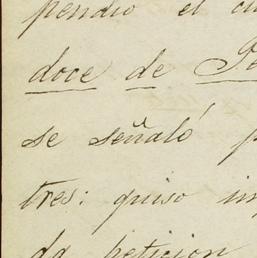 pendió el
doce de
se señaló
tres: quiso
da peticion